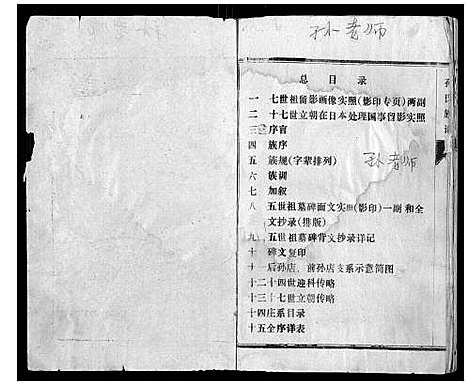 孙老师
总目录
一 七世祖留影画像实照(影印专页)两副
二 十七世立朝在日本处理国事留影实照
三 序言
四 族序
五 族规(字辈排列)
孙老师
六 族训
七 加叙
八 五世祖墓碑面文实照(影印)一副和全
文抄录(排版)
九 五世祖墓碑背文抄录详记
十 碑文复印
十一 后孙店、前孙店支系示意简图
十二 十四世逢科传略
十三 十七世立朝传略
十四庄系目录
十五全序详表